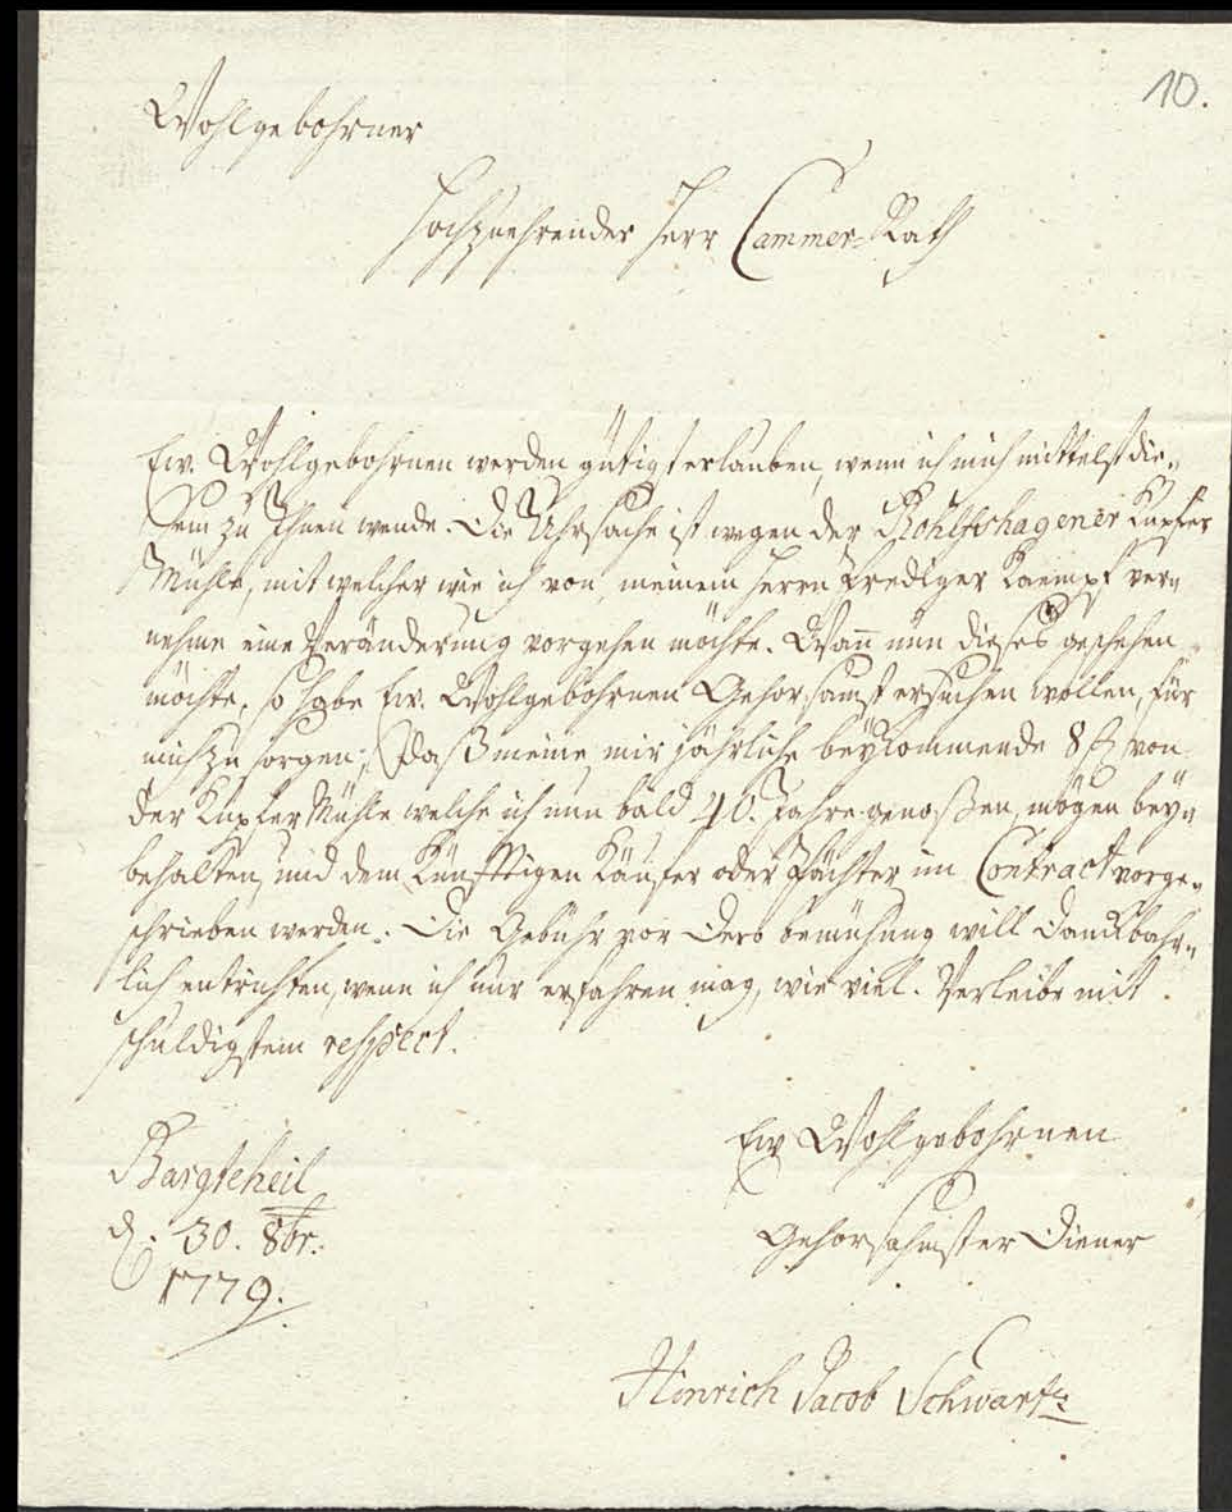 10.
Wohlgebohrner
Hochzuehrender Herr Cammer-Rath
Ew. Wohlgebohrnen werden gütigst erlauben, wenn ich mich mittelst die„
sem zu Ihnen wende. Die Uhrsache ist wegen der Rohlfshagener Kupfer
Mühle, mit welcher wie ich von meinem Herrn Prediger Kaempf ver„
nehme eine Veränderung vorgehen möchte. Wan̄ nun dieses geschehen
möchte, so habe Ew. Wohlgebohrnen Gehorsamst ersuchen wollen, für
mich zu sorgen; Daß meine mir jährliche beykommende 8 von
der Kupfer Mühle welche ich nun bald 40. Jahre genoßen, mögen bey„
behalten, und dem Künfftigen Käufer oder Pächter im Contract vorge„
schrieben werden. Die Gebühr vor Dero bemühung will Danckbahr„
lich entrichten, wenn ich nur erfahren mag, wie viel. Verleibe mit
schuldigstem respect.
Ew Wohlgebohrnen
Bargteheil
d. 30. 8br.
Gehorsahmster Diener
1779.
Hinrich Jacob Schwartz